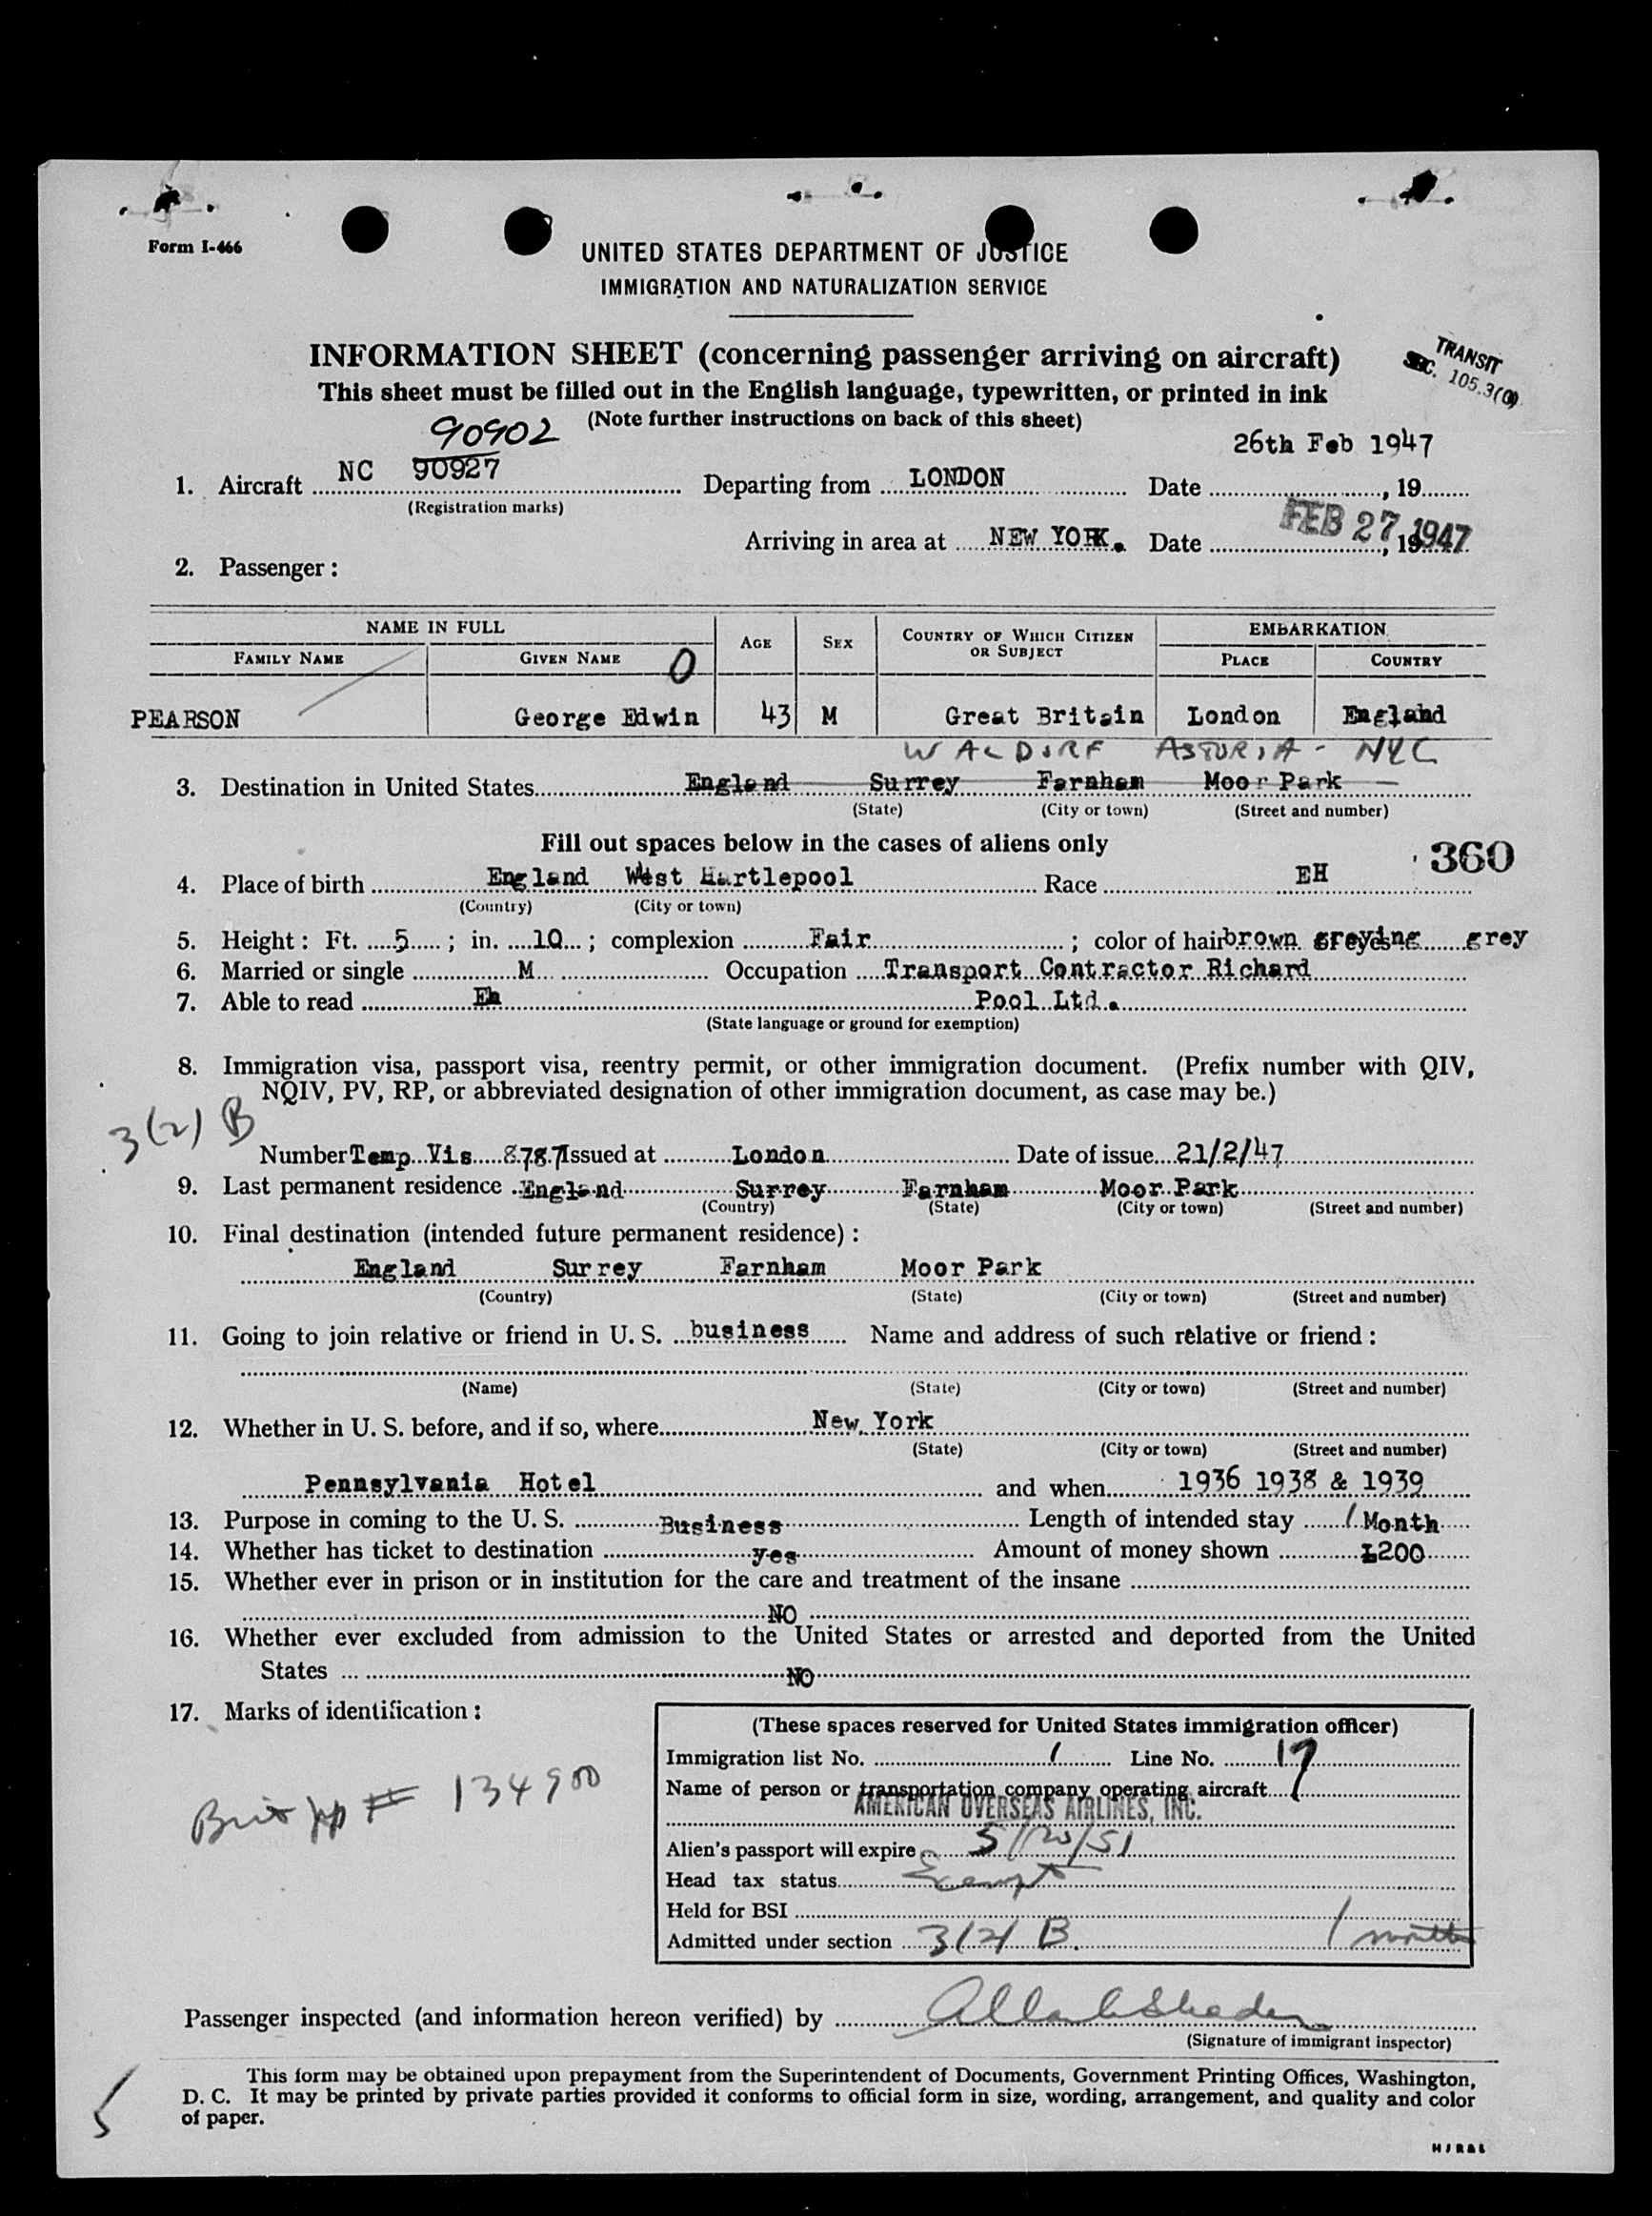 Form I-466
UNITED STATES DEPARTMENT OF JUSTICE
IMMIGRATION AND NATURALIZATION SERVICE
INFORMATION SHEET (concerning passenger arriving on aircraft)
TRANSIT
SEC. 105.3(0)
This sheet must be filled out in the English language, typewritten, or printed in ink
(Note further instructions on back of this sheet)
90902
26th Feb 1947
1. Aircraft NC 90927 Departing from LONDON Date , 19
(Registration marks)
Arriving in area at NEW YORK. Date FEB 27 1947, 19
2. Passenger:
NAME IN FULL AGE SEX COUNTRY OF WHICH CITIZEN OR SUBJECT EMBARKATION
FAMILY NAME GIVEN NAME PLACE COUNTRY
0
PEARSON George Edwin 43 M Great Britain London England
WALDORF ASTORIA - NYC
3. Destination in United States England Surrey Farnham Moor Park
(State) (City or town) (Street and number)
Fill out spaces below in the cases of aliens only
360
4. Place of birth England West Hartlepool Race EH
(Country) (City or town)
5. Height: Ft. 5; in. 10; complexion Fair; color of hair brown greying eyes grey
6. Married or single M Occupation Transport Contractor Richard
7. Able to read Eh Pool Ltd.
(State language or ground for exemption)
8. Immigration visa, passport visa, reentry permit, or other immigration document. (Prefix number with QIV,
NQIV, PV, RP, or abbreviated designation of other immigration document, as case may be.)
3(2) B
Number Temp Vis 8787 Issued at London Date of issue 21/2/47
9. Last permanent residence England Surrey Farnham Moor Park
(Country) (State) (City or town) (Street and number)
10. Final destination (intended future permanent residence):
England Surrey Farnham Moor Park
(Country) (State) (City or town) (Street and number)
11. Going to join relative or friend in U. S. business Name and address of such relative or friend:
(Name) (State) (City or town) (Street and number)
12. Whether in U. S. before, and if so, where New York
(State) (City or town) (Street and number)
Pennsylvania Hotel and when 1936 1938 & 1939
13. Purpose in coming to the U. S. Business Length of intended stay 1 Month
14. Whether has ticket to destination yes Amount of money shown £200
15. Whether ever in prison or in institution for the care and treatment of the insane
NO
16. Whether ever excluded from admission to the United States or arrested and deported from the United
States NO
17. Marks of identification:
Brit pp # 134900
(These spaces reserved for United States immigration officer)
Immigration list No. 1 Line No. 17
Name of person or transportation company operating aircraft
AMERICAN OVERSEAS AIRLINES, INC.
Alien's passport will expire 5/20/51
Head tax status Exempt
Held for BSI
Admitted under section 3(2) B. 1 month
Passenger inspected (and information hereon verified) by
(Signature of immigrant inspector)
This form may be obtained upon prepayment from the Superintendent of Documents, Government Printing Offices, Washington,
D. C. It may be printed by private parties provided it conforms to official form in size, wording, arrangement, and quality and color
of paper.